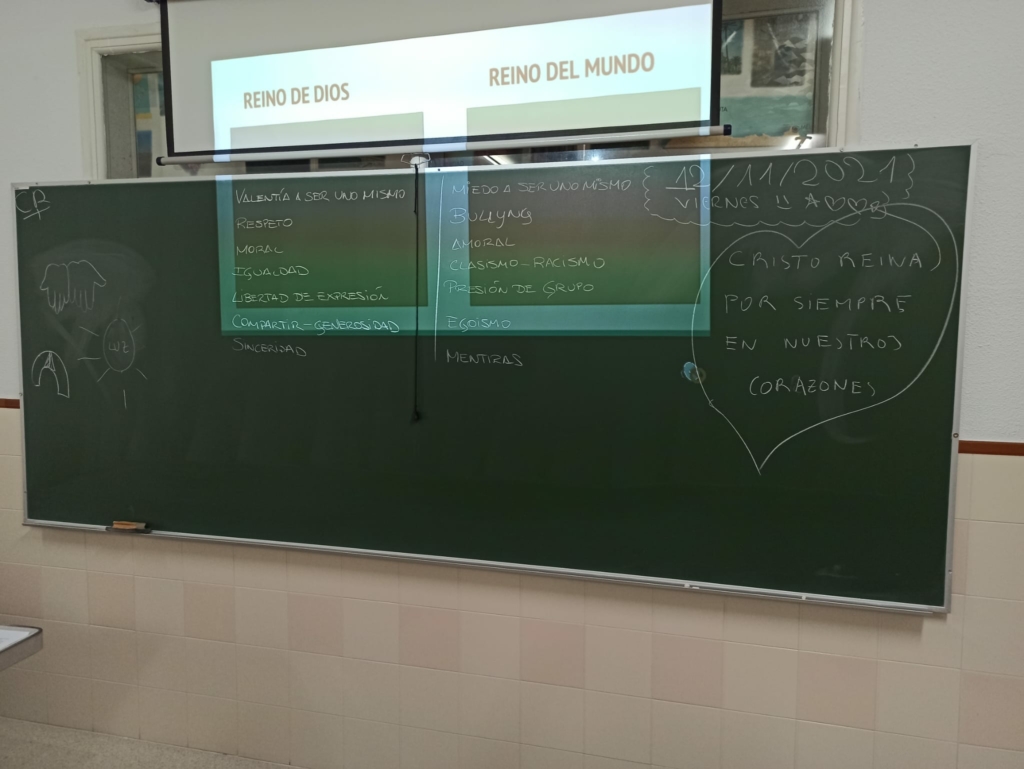 REINO DE DIOS
REINO DEL MUNDO
VALENTÍA A SER UNO MISMO
RESPETO
MORAL
IGUALDAD
LIBERTAD DE EXPRESIÓN
COMPARTIR-GENEROSIDAD
SINCERIDAD
MIEDO A SER UNO MISMO
BULLYNG
AMORAL
CLASISMO-RACISMO
PRESIÓN DE GRUPO
EGOISMO
MENTIRAS
12/11/2021
VIERNES
CRISTO REINA
POR SIEMPRE
EN NUESTROS
CORAZONES
LUZ